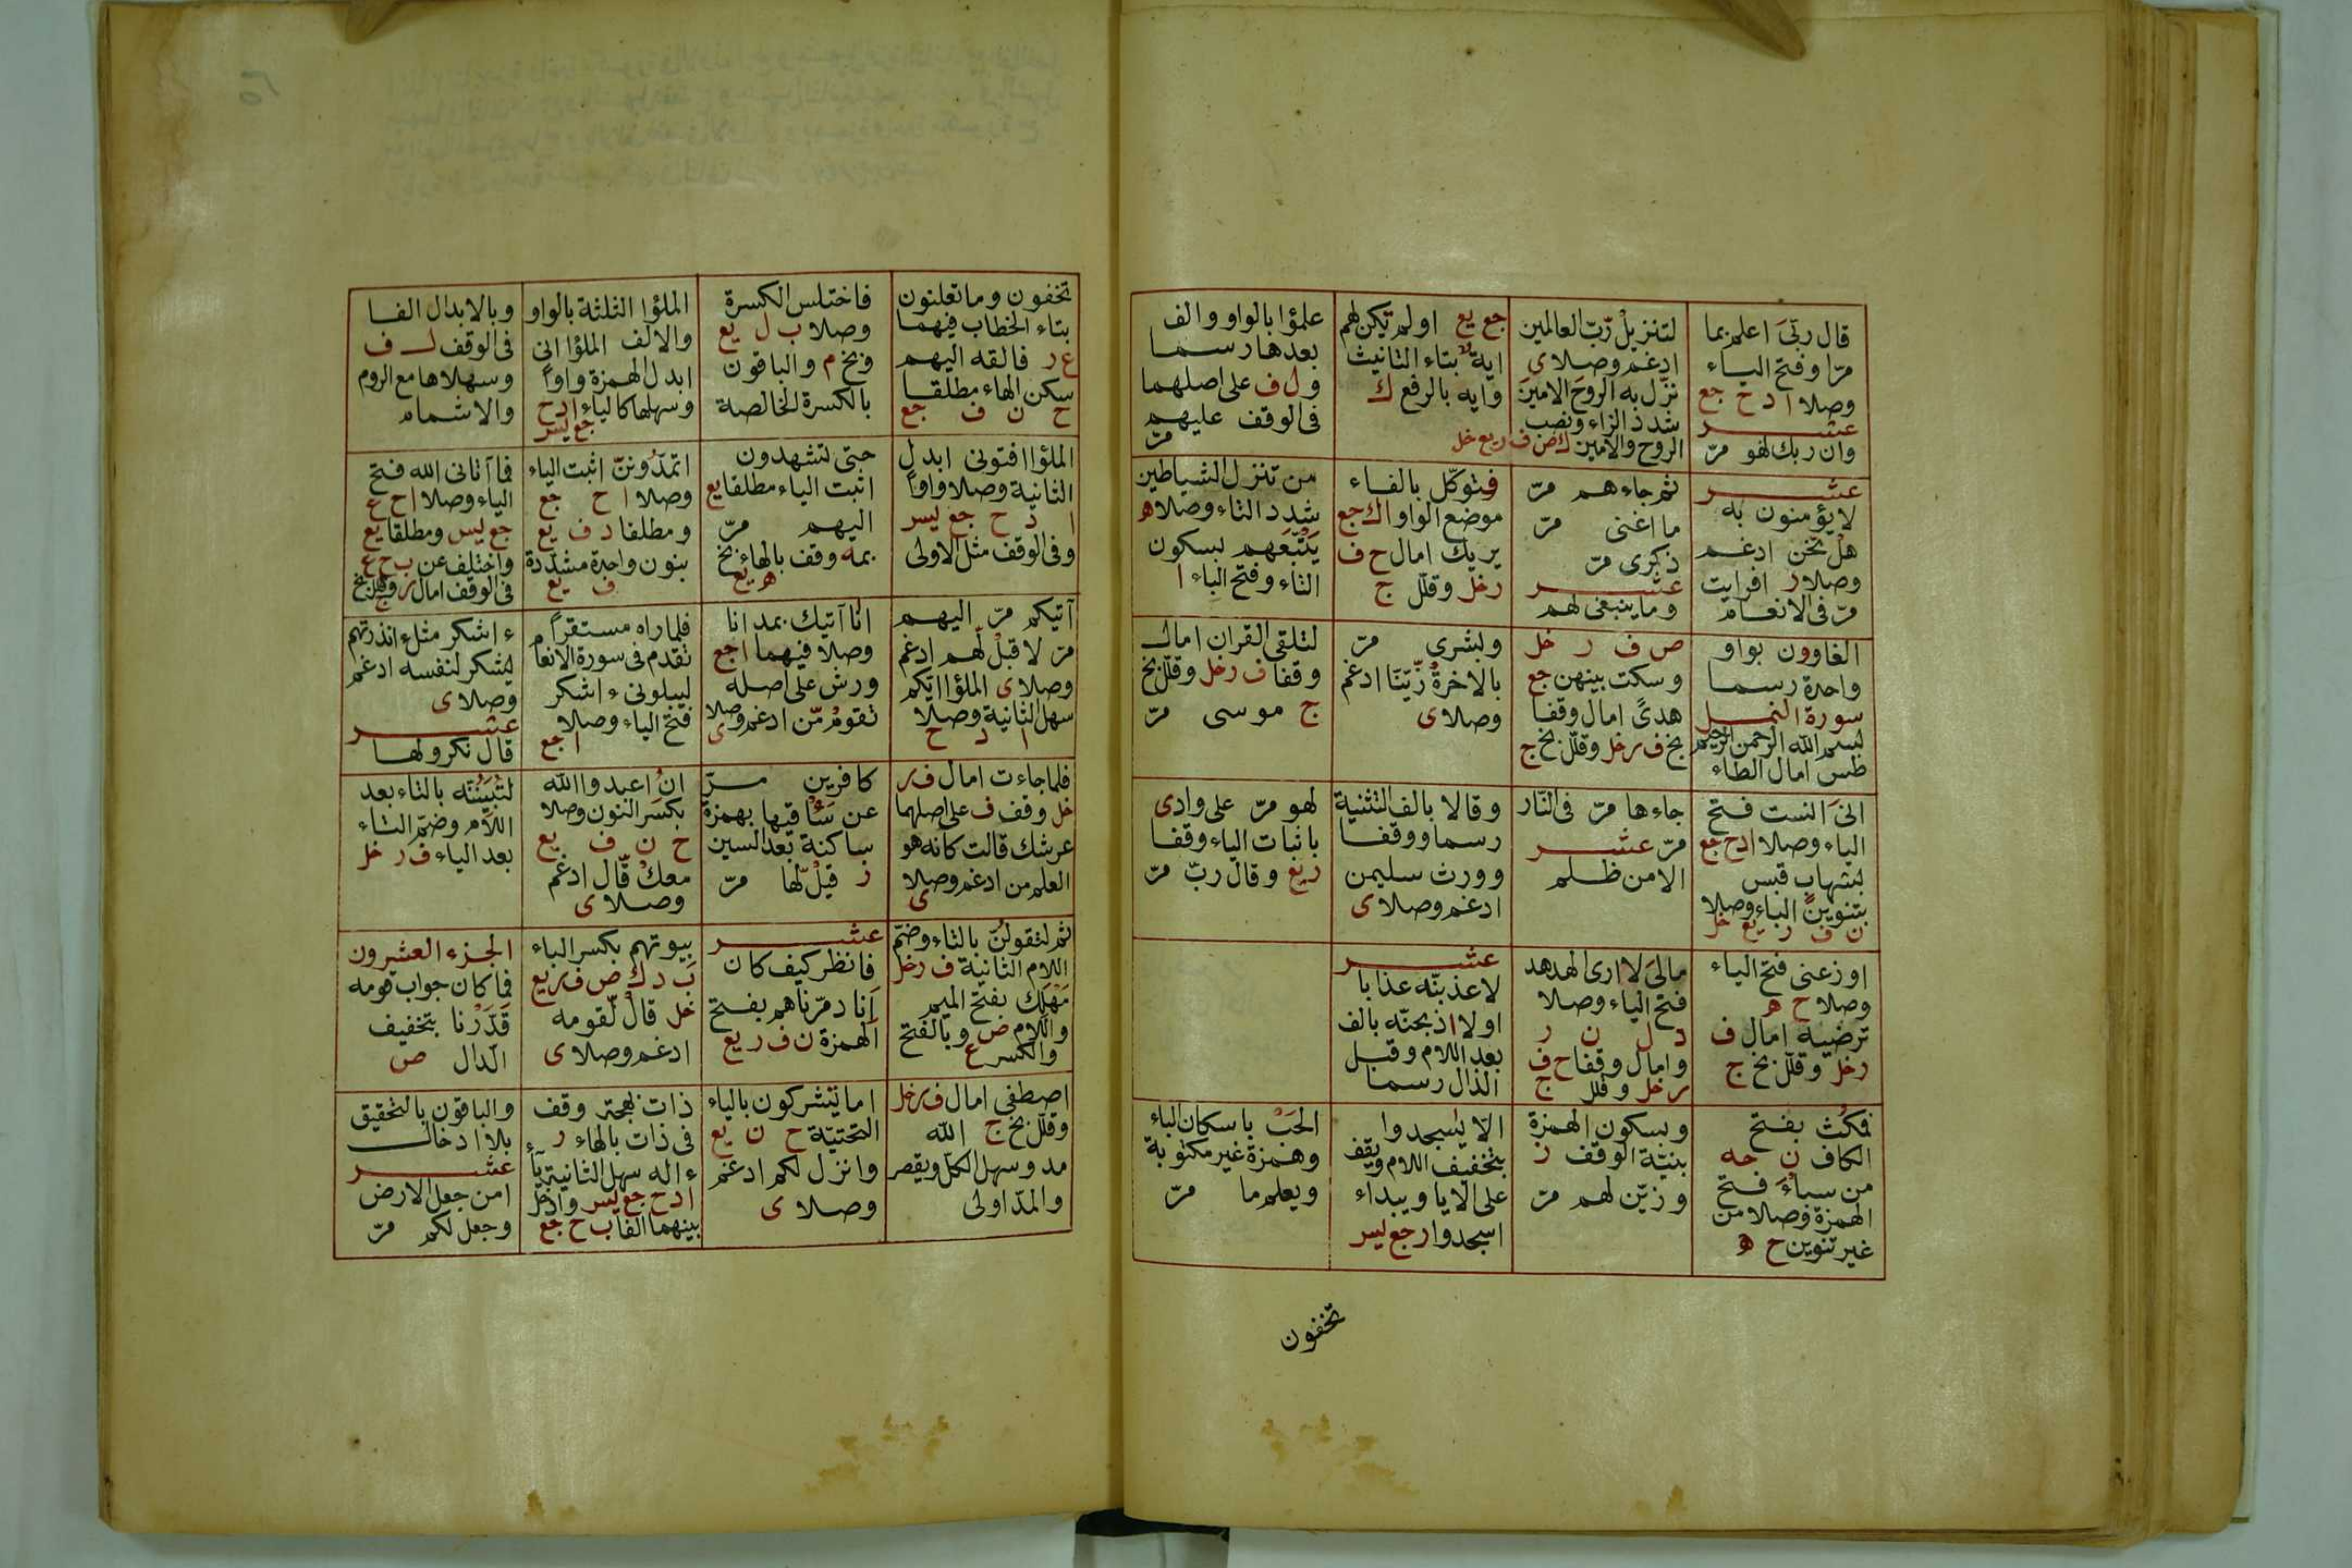 قال ربّى اعلم بما
مرّا وفتح اليـاء
وصلا ا د ح جع
عشـــر
وان ربك لهو مرّ
لتنزيلُ رّبّ العالمين
ادغم وصلا ى
نزّل به الروحَ الامينَ
شدد الزاء ونصب
الروح والامين ك ص ف ر يع خل
جع يع اولم تكن لهم
اية بتاء التانيث
وايه بالرفع ك
علمؤا بالواو والف
بعدها رسمـا
و ل ف على اصلهما
فى الوقف عليهم
مرّ
عشـــر
لا يؤمنون به
هلْ نّحن ادغـم
وصلا ر افرايت
مرّ فى الانعـام
ثم جاءهم مرّ
ما اغنى مرّ
ذكرى مرّ
عشـــر
وما ينبغى لهم
فتوكّل بالفـاء
موضع الواو ا ك جع
يريك امال ح ف
ر خل وقلّل ج
من تنزل الشياطين
شدد التاء وصلا ه
يَتْبَعهم بسكون
التاء وفتح الباء ا
الغاوون بواو
واحدة رسمـا
سورة النمـل
بسم الله الرحمن الرحيم
طس امال الطاء
ص ف ر خل
وسكت بينهن جع
هدىً امال وقفا
بخ ف ر خل وقلّل بخ ج
وبشرى مرّ
بالاخرةُ زّيّنّا ادغم
وصلا ى
لتلقى القران امال
وقفا ف ر خل وقلّل بخ
ج موسى مرّ
انىَ انست فتح
الياء وصلا ا د ح جع
بشهابٍ قبس
بتنوين الباء وصلا
ن ف ر يع خل
جاءها مرّ فى النّار
مرّ عشـــر
الا من ظـلم
وقالا بالف التثنية
رسما ووقفـا
وورث سليمن
ادغم وصلا ى
لهو مرّ على وادى
باثبات الياء وقفا
ر يع وقال ربّ مرّ
اوزعنى فتح الياء
وصلا ح ه
ترضيه امال ف
ر خل وقلّل بخ ج
مالىَ لا ارى الهدهد
فتح الياء وصلا
د ل ن ر
وامال وقفا ح ف
ر خل وقلل ج
عشـــر
لاعذبنّه عذابا
او لا اذبحنّه بالف
بعد اللام وقبل
الذال رسما
فمكُث بفتح
الكاف ن حه
من سباءَ فتح
الهمزة وصلا من
غير تنوين ح ه
وبسكون الهمزة
بنيّة الوقف ز
وزيّن لهم مرّ
الا يسجدوا
بتخفيف اللام ويقف
على الا يا ويبداء
اسجدوا ر جع ليس
الخبْ باسكان الباء
وهمزة غير مكتوبة
ويعلم ما مرّ
تخفون
تخفون وما تعلنون
بتاء الخطاب فيهما
ع ر فالقه اليهم
سكن الهاء مطلقـا
ح ن ف جع
فاختلس الكسرة
وصلا ب ل يع
وبخ م والباقون
بالكسرة الخالصة
الملؤا الثلثة بالواو
والالف الملؤا انى
ابدل الهمزة واواً
وسهلها كالياء ا د ح
جع ليس
وبالابدال الفـا
فى الوقف لـ ف
وسهلاها مع الروم
والاشمام
الملؤا افتونى ابدل
الثانية وصلا واواً
ا د ح جع ليس
وفى الوقف مثل الاولى
حتى تشهدون
اثبت الياء مطلقا يع
اليهم مرّ
بمه وقف بالهاء بخ
ه يع
اتمدّوننّ اثبت الياء
وصلا ا ح جع
ومطلقا د ف يع
بنون واحدة مشددة
ف يع
فما آتانى الله فتح
الياء وصلا ا ح ع
جع ليس ومطلقا يع
واختلف عن ب ح ع
فى الوقف امال ر وقلل بخ
ج
آتيكم مرّ اليهم
مرّ لا قبلْ لّهم ادغم
وصلا ى الملؤا ايّكم
سهل الثانية وصلا
ا د ح
انا آتيك بمد انا
وصلا فيهما ا جع
ورش على اصله
تقومُ مّن ادغم وصلا
ى
فلما راه مستقراً
تقدم فى سورة الانعام
ليبلونى ءاشكر
فتح الياء وصلا
ا جع
ءاشكر مثل ءانذرتهم
يشكر لنفسه ادغم
وصلا ى
عشـــر
قال نكروا لها
فلما جاءت امال ف ر
خل وقف ف على اصلهما
عرشك قالت كانه هو
العلم من ادغم وصلا
ى
كافرين مـرّ
عن سَأْقيها بهمزة
ساكنة بعد السين
ز قيلْ لّها مرّ
انُ اعبدوا الله
بكسر النون وصلا
ح ن ف يع
معكْ قّال ادغم
وصـلا ى
لتُبَيّتُنّه بالتاء بعد
اللام وضمّ التاء
بعد الياء ف ر خل
ثم لتقولُنّ بالتاء وضمّ
اللام الثانية ف ر خل
مَهْلَك بفتح الميم
واللام ص وبالفتح
والكسر ع
عشـــر
فانظر كيف كان
اَنا دمّرناهم بفتح
الهمزة ن ف ر يع
بيوتهم بكسر الباء
ب د ك ص ف ر يع
خل قالْ لّقومه
ادغم وصلا ى
الجزء العشرون
فما كان جواب قومه
قَدَرْنا بتخفيف
الدال ص
اصطفى امال ف ر خل
وقلّل بخ ج الله
مد وسهل الكلّ ويقصر
والمدّ اولى
اما يشركون بالياء
التحتيّة ح ن يع
وانزل لكم ادغم
وصـلا ى
ذات بهجة وقف
فى ذات بالهاء ر
ءاله سهل الثانية ياءً
ا د ح جع ليس وادخل
بينهما الفا ب ح جع
والباقون بالتحقيق
بلا ادخال
عشـــر
امن جعل الارض
وجعل لكم مرّ